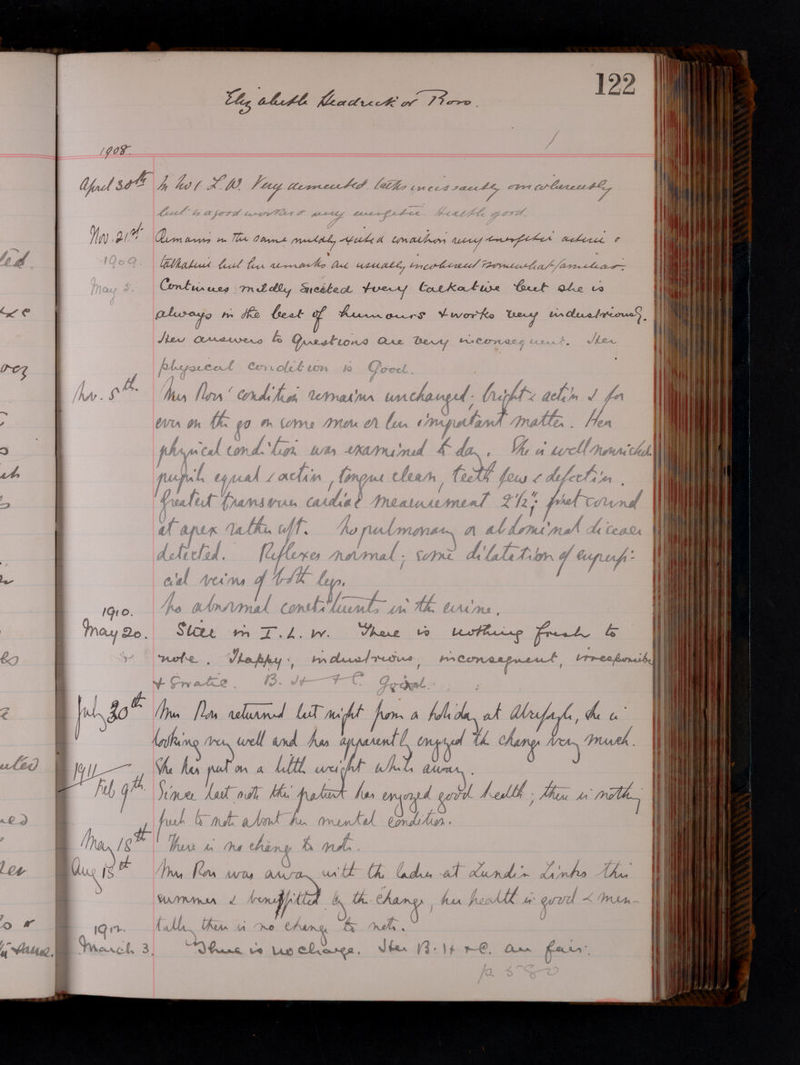 122
Elizabeth Headrick or Ross.
1908.
April 30th In No 1 L.W. Very demented talks incessantly & incoherently
but is a good worker & very energetic. Health good.
Nov. 21st Remains in the same mildly excited condition very energetic active &
1909. talkative but her remarks are usually incoherent & somewhat familiar.
May 5. Continues mildly excited & very talkative but she is
always in the best of humours & works very industriously.
Her answers to Questions are very inconsequent. Her
physical condition is Good.
Nov. 5th. Mrs Ross' condition remains unchanged; bright & active & for
ever on the go on some more or less important matter. Her
physical condition was examined to day. She is well nourished
pupils equal & active, tongue clean, teeth few & defective.
Greatest transverse cardiac measurement 2 1/2"; first sound
at apex rather soft. No pulmonary or abdominal disease
detected. Reflexes normal; some dilatation of superfi-
cial veins of both legs.
1910. No abnormal constituents in the urine.
May 20. Still in I.L.W. There is nothing fresh to
note. Happy, industrious, inconsequent, irresponsible
& Erratic. B. H & C. Good.
July 30th Mrs Ross returned last night from a holiday at, she is
looking very well and has apparently enjoyed the change very much.
1911 She has put on a little weight while away.
Feb 9th. Since last note this patient has enjoyed good health; there is nothing
fresh to note about her mental condition.
May 18th There is no change to note.
Aug 15th Mrs Ross was away with the ladies at Lundin Links this
summer & benefitted by the change, her health is good & men-
1912. tally there is no change to note.
March 3. There is no change. Her B. H & C. are fair.
p. 580
led.
uted